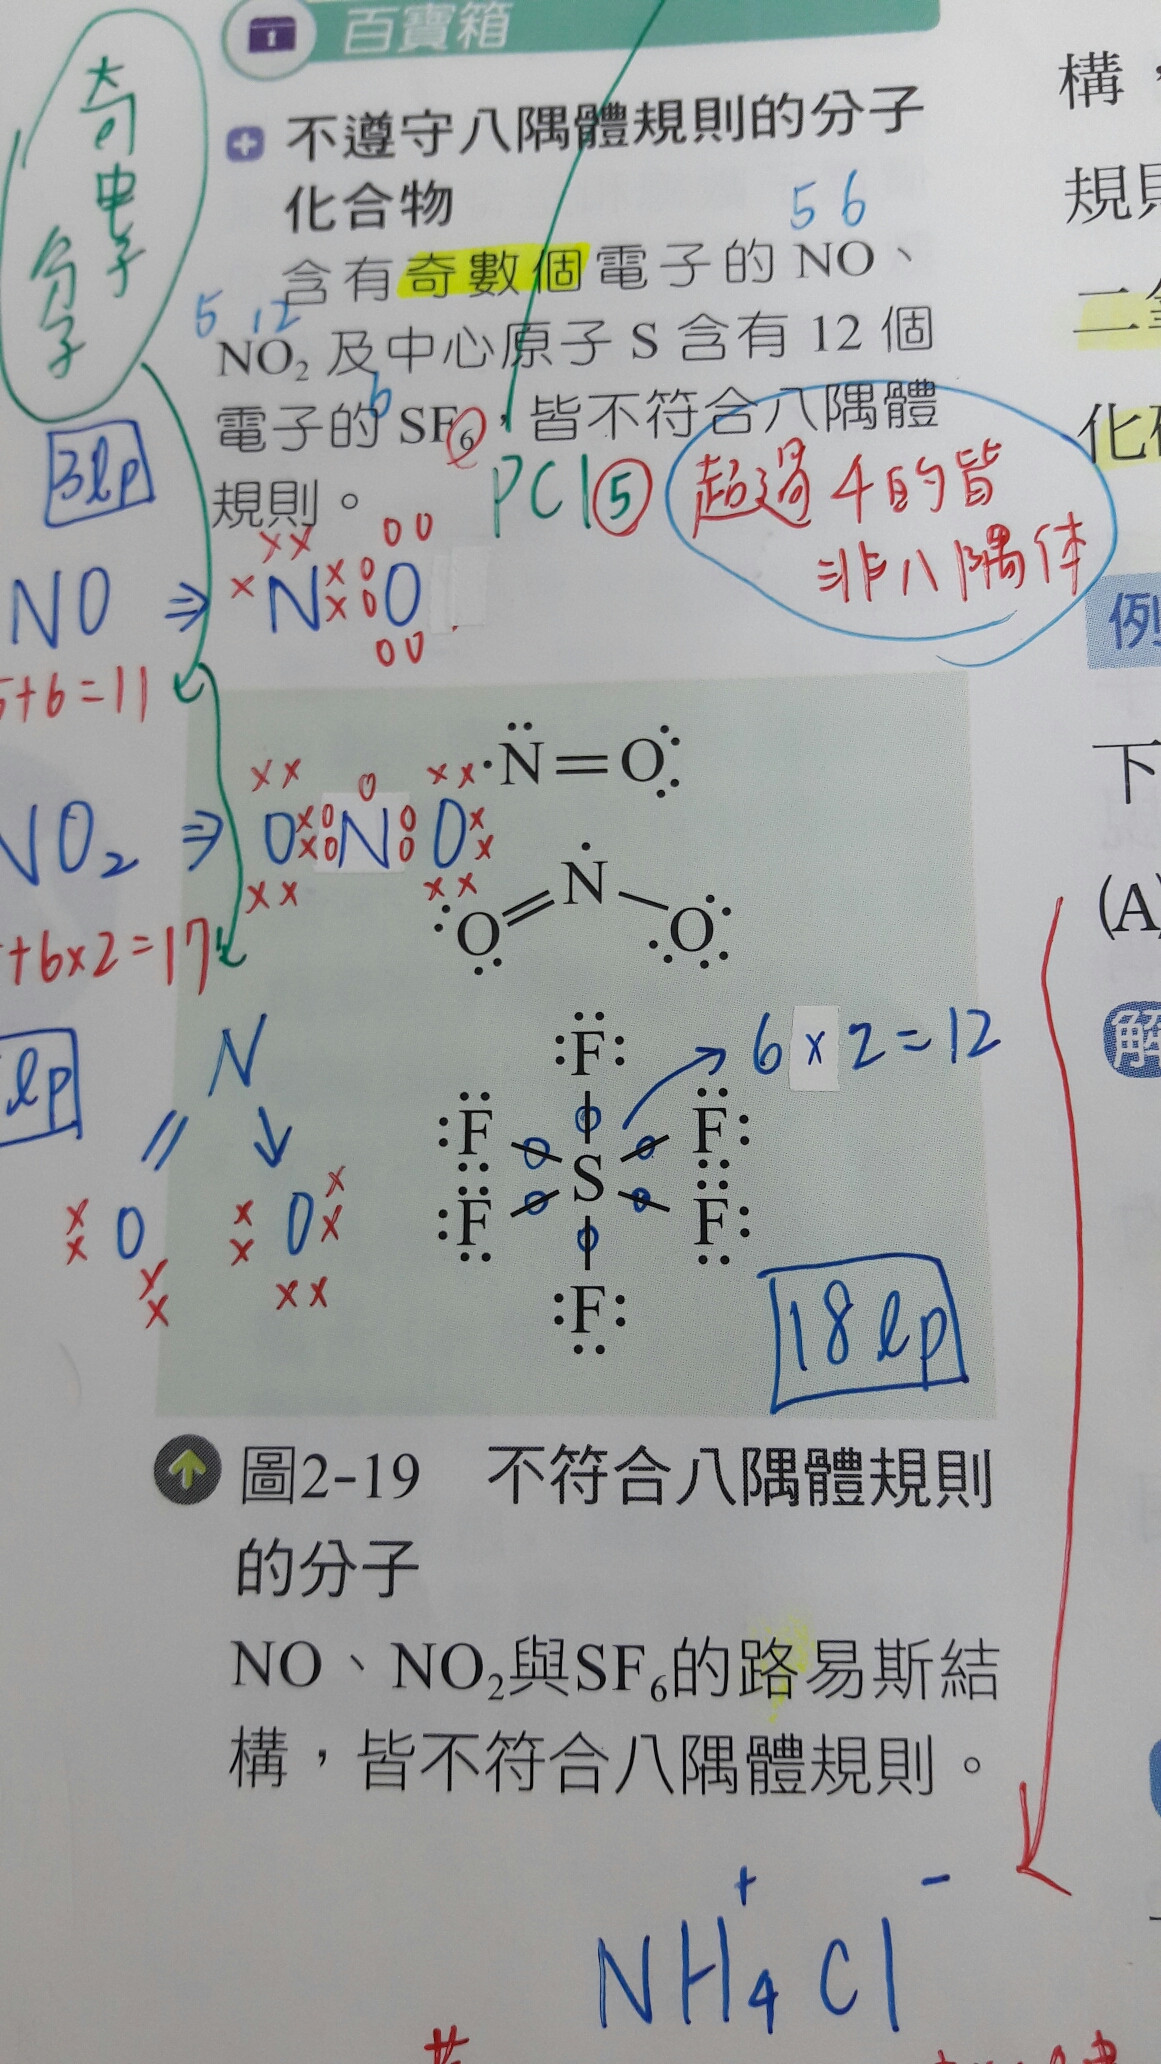 百寶箱
奇電子分子
不遵守八隅體規則的分子
化合物
5 6
含有奇數個電子的 NO、
5 12
NO₂ 及中心原子 S 含有 12 個
6
電子的 SF₆,皆不符合八隅體
規則。
3lp
PCl⑤
超過4的皆
非八隅体
NO ⇒ N O
5+6=11
N=O
NO₂ ⇒ O N O
+6×2=17
N
O O
lp
N
O O
F
F F
S
F F
F
6×2=12
18lp
圖2-19 不符合八隅體規則
的分子
NO、NO₂與SF₆的路易斯結
構,皆不符合八隅體規則。
NH₄⁺Cl⁻
構,
規則
化
例
下
(A)
解